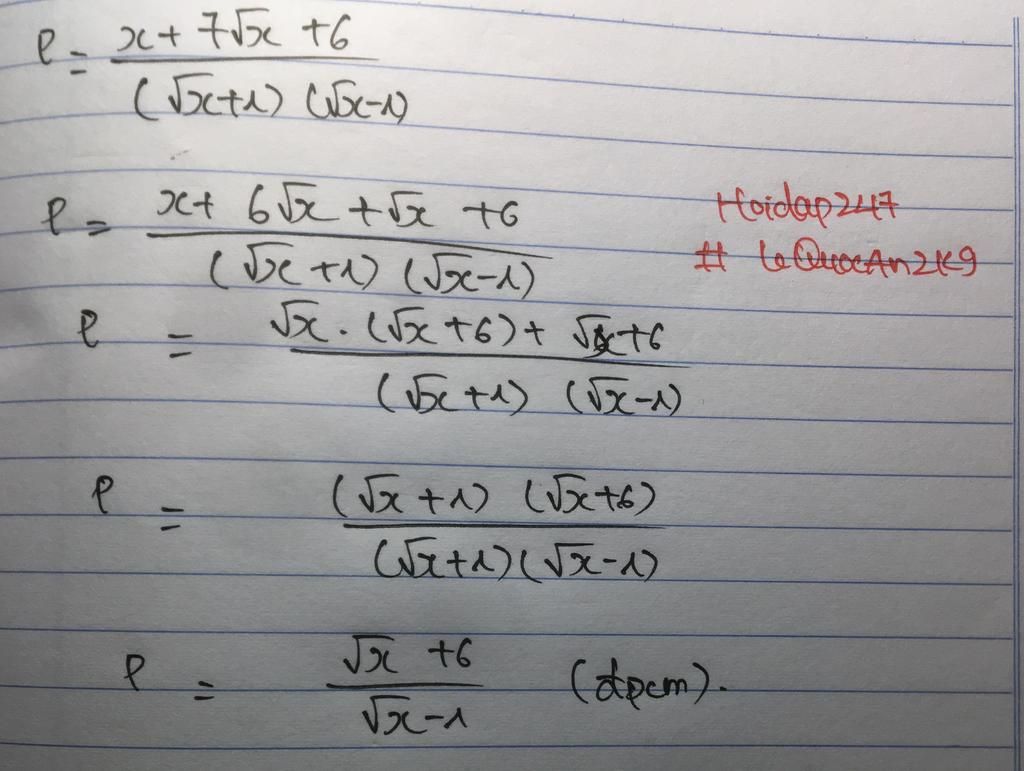 P = (x + 7√x + 6) / ((√x+1) (√x-1))
P = (x + 6√x + √x + 6) / ((√x+1) (√x-1))
Hoidap247
# LeQuocAn2K9
P = (√x . (√x+6) + √x+6) / ((√x+1) (√x-1))
P = ((√x+1) (√x+6)) / ((√x+1)(√x-1))
P = (√x + 6) / (√x-1) (đpcm).